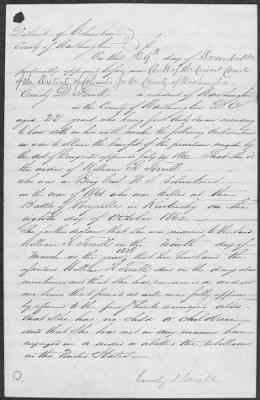 District of Columbia
County of Washington
On this 29th day of December 1862
personally appeared before me Clerk of the Circuit Court
of the District of Columbia for the County of Washington
Emily D. Terrill a resident of Washington
in the County of Washington D C
aged 22 years who being first duly sworn according
to law doth on her oath make the following declaration
in order to obtain the benefit of the provision made by
the act of Congress approved July 14 1862. That She is
the widow of William R Terrill
who was a Brig Genl Vol
in the war of 1861 who was killed at the
Battle of Perryville in Kentucky on the
eighth day of October 1862
She further declares that she was married to the said
William R Terrill on the Ninth day of
March in the year 1858 that her husband the
aforesaid William R Terrill died on the day above
mentioned and that she has remained a widow
ever since that period as will more fully appear
by reference to the proof hereto annexed
that She has no child or children
and that She has not in any manner been
engaged in or aided or abetted the rebellion
in the United States
Emily D Terrill